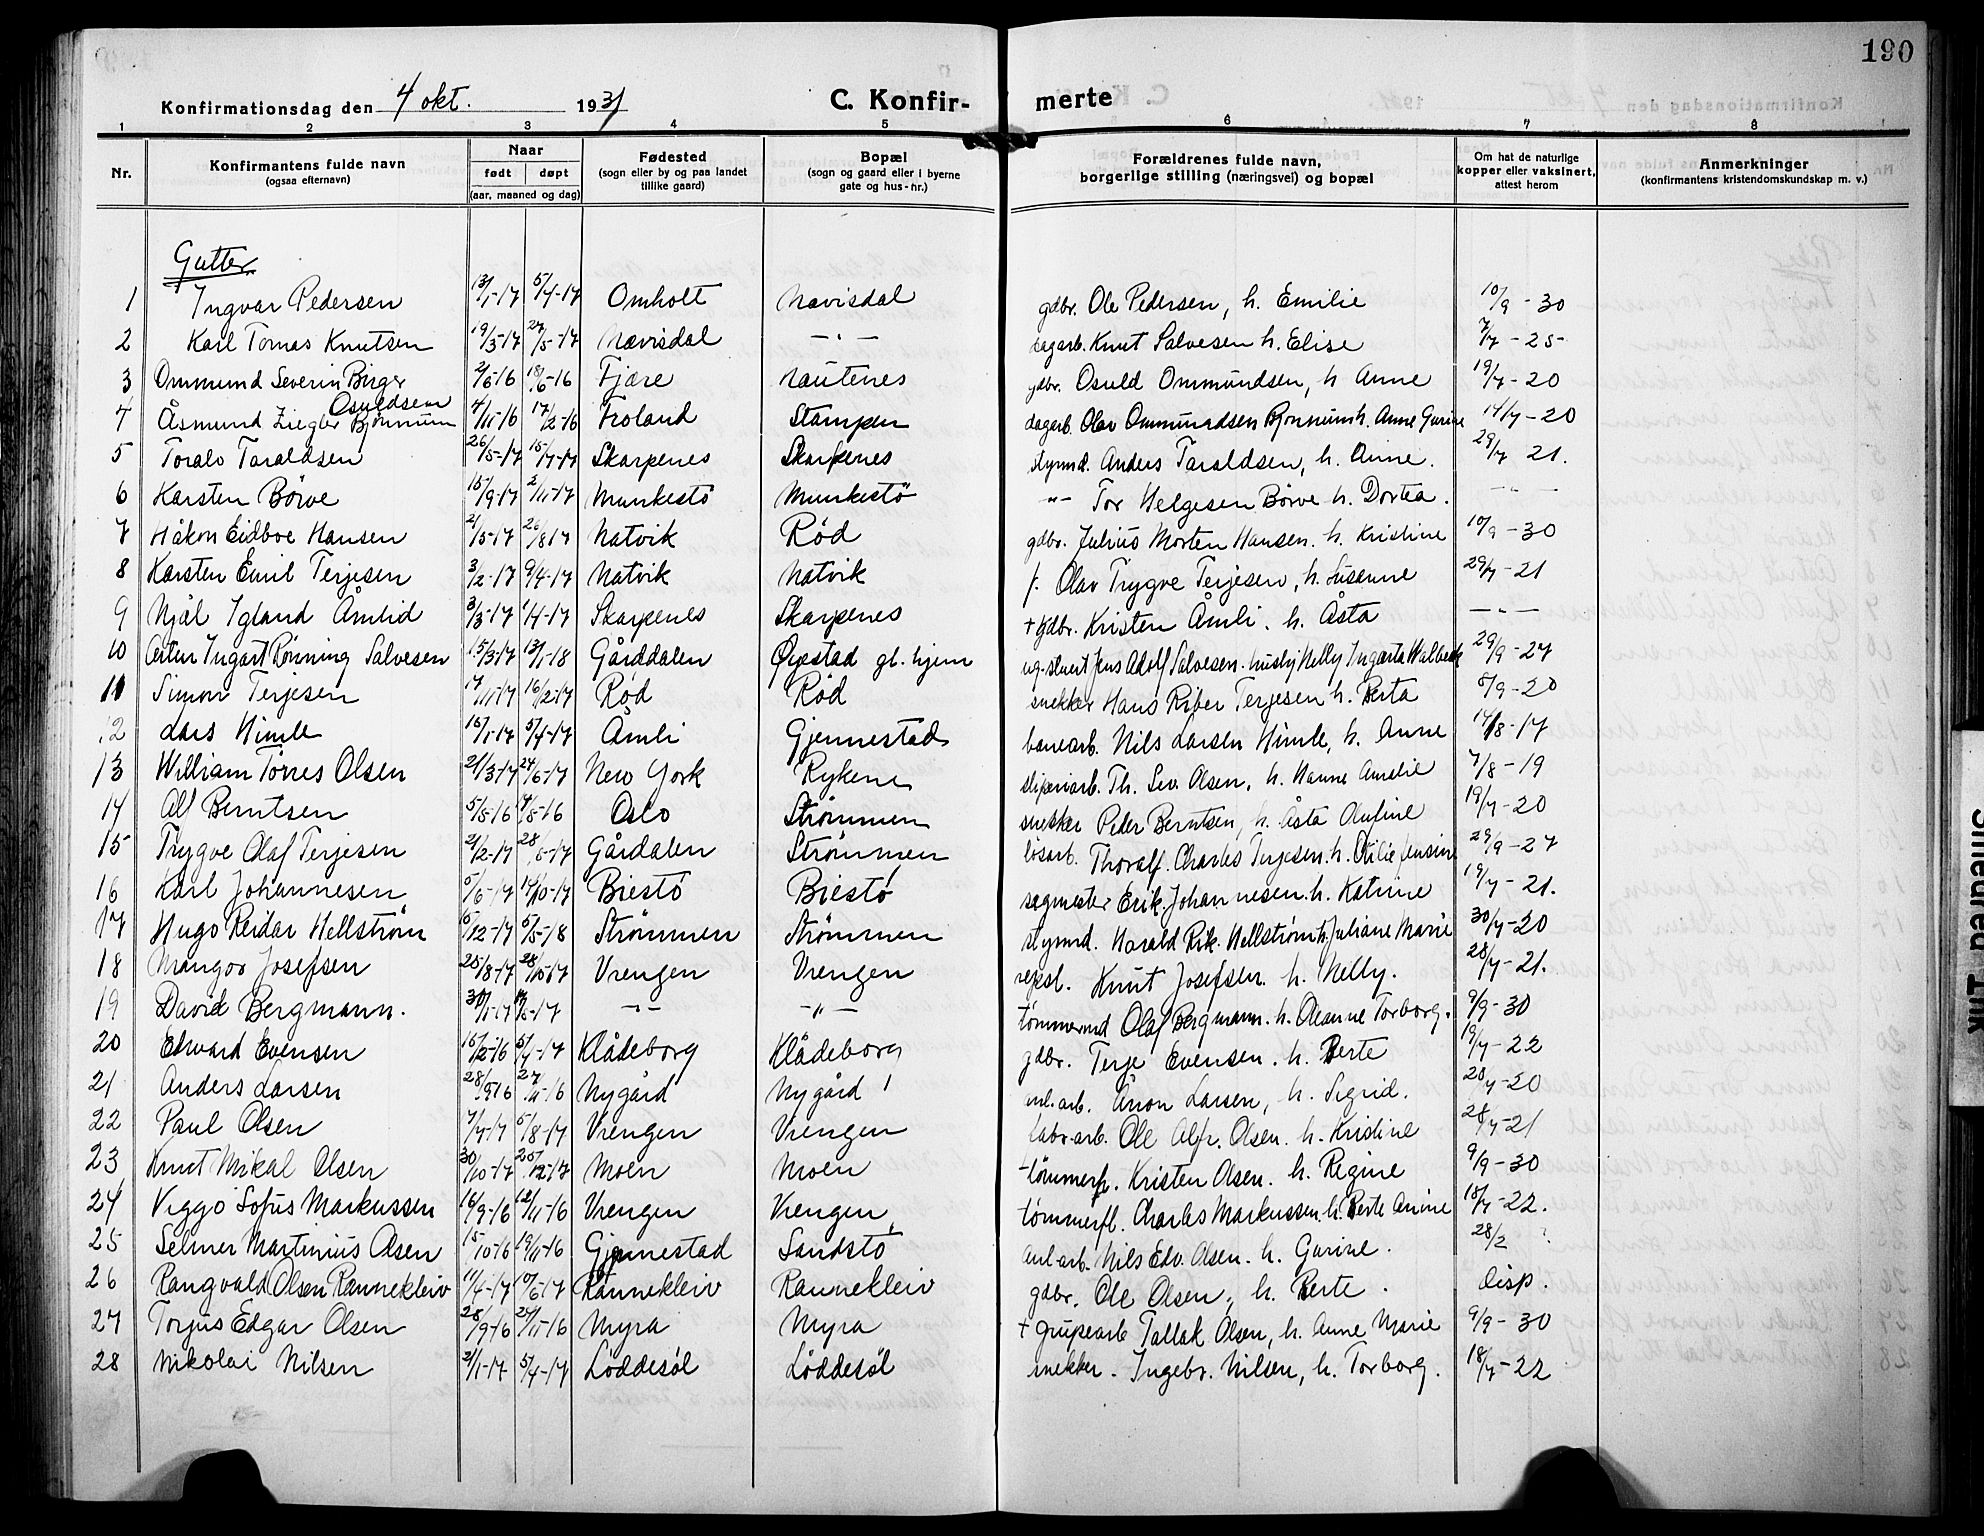 190
Konfirmationsdag den 4 okt. 1931 C. Konfir- merte
1 2 3 4 5 6 7 8
Nr. Konfirmantens fulde navn (ogsaa efternavn) Naar født døpt (aar, maaned og dag) Fødested (sogn eller by og paa landet tillike gaard) Bopæl (sogn og gaard eller i byerne gate og hus-nr.) Forældrenes fulde navn, borgerlige stilling (næringsvei) og bopæl Om hat de naturlige kopper eller vaksinert, attest herom Anmerkninger (konfirmantens kristendomskundskap m. v.)
Gutter
1 Ingvar Pedersen 13/1-17 5/4-17 Omholt Nævisdal gdbr. Ole Pedersen, h. Emilie 10/9-30
2 Karl Tomas Knutsen 19/3-17 27/5-17 Nævisdal -"- dagarb. Knut Salvesen h. Elise 7/7-25
3 Ommund Severin Birger Osuldsen 2/6-16 18/6-16 Fjære Nautenes gdbr. Osuld Ommundsen, h Anne 19/7-20
4 Åsmund Ziegler Bjønnum 4/11-16 17/2-16 Froland Stampen dagarb. Olav Ommundsen Bjonnum h. Anne Gurine 14/7-20
5 Toralv Taraldsen 26/5-17 15/7-17 Skarpenes Skarpenes styrmd. Anders Taraldsen, h. Anne. 29/7 21.
6 Karsten Börve 15/9-17 2/11-17 Munkestö Munkestö -"- Tor Helgesen Börve h. Dortea. -"-
7 Håkon Eidboe Hansen 21/5-17 26/8 17 Natvik Rød gdbr. Julius Morten Hansen. h. Kristine 10/9-30
8 Karsten Emil Terjesen 3/2-17 9/4-17 Natvik Natvik f. Olav Trygve Terjesen, h. Susanne 29/7-21
9 Njål Igland Åmlid 3/3-17 1/4-17 Skarpenes Skarpenes + gdbr. Kristen Åmli. h. Åsta -"-
10 Artur Ingart Rønning Salvesen 15/3-17 13/1-18 Gårddalen Øyestad gl. hjem ug. stuert Jens Adolf Salvesen. hushj Nelly Ingarta Walbeck 29/9-27
11 Simon Terjesen 17/11-17 16/2-17 Rød Rød snekker Hans Riber Terjesen h. Berta 5/9-20
12 Lars Himle 15/1-17 5/4-17 Åmli Gjennestad banearb. Nils Larsen Himle, h. Anne 14/8-17
13 William Torres Olsen 21/3-17 24/6-17 New York Rykene sliperiarb. Th. Sev. Olsen, h. Hanne Amelie 7/8-19
14 Alf Berntsen 5/5-16 /8-16 Oslo Strömmen snekker Peder Berntsen, h. Åsta Olufine 19/7-20
15 Trygve Olaf Terjesen 21/2-17 28/5-17 Gårdalen Strömmen løsarb. Thoralf. Charles Terjesen. h. Otilie Jensine 29/9-27
16 Karl Johannesen 5/6-17 14/10-17 Biestö Biestö sagmester Erik. Johannesen. h. Katrine 19/7-21.
17 Hugo Reidar Hellström 15/12-17 5/5-18 Strömmen Strömmen styrmd. Harald Rik. Hellström h. Juliane Marie 30/7-20
18 Mangor Josefsen 25/8-17 28/10-17 Vrengen Vrengen repsl. Knut Josefsen. h. Nelly. 28/7-21.
19 David Bergmann. 30/1-17 /5-17 -"- -"- tømmermd Olaf Bergmann. h. Oleanne Torborg. 9/9-30
20 Edvard Evensen 15/12-16 5/4-17 Klådeborg Klådeborg gdbr. Terje Evensen. h. Berte 19/7-22
21 Anders Larsen 28/9 16 27/11-16 Nygård Nygård anl.arb. Anon Larsen, h. Sigrid. 28/7-20
22 Paul Olsen 7/7-17 5/8-17 Vrengen Vrengen fabr. arb. Ole Alfr. Olsen. h. Kristine 28/7-21
23 Knut Mikal Olsen 30/10-17 25/12-17 Moen Moen tömmerfl. Kristen Olsen. h. Regine 9/9-30
24 Viggo Sofus Markussen 16/9-16 12/11-16 Vrengen Vrengen tømmerfl. Charles Markussen. h. Berte Anine 18/7-22.
25 Selmer Martinius Olsen 15/10-16 19/11-16 Gjennestad Sandstö anl arb. Nils Edv. Olsen. h. Gurine. 28/2
26 Rangvald Olsen Rannekleiv 11/4-17 10/6-17 Rannekleiv Rannekleiv gdbr. Ole Olsen, h. Berte. disp.
27 Torjus Edgar Olsen 28/9-16 24/11-16 Myra Myra + grupearb Tallak Olsen, h. Anne Marie 9/9-30
28 Nikolai Nilsen 2/1-17 5/4-17 Löddesöl Löddesöl snekker. Ingebr. Nilsen, h. Torborg. 18/7-22